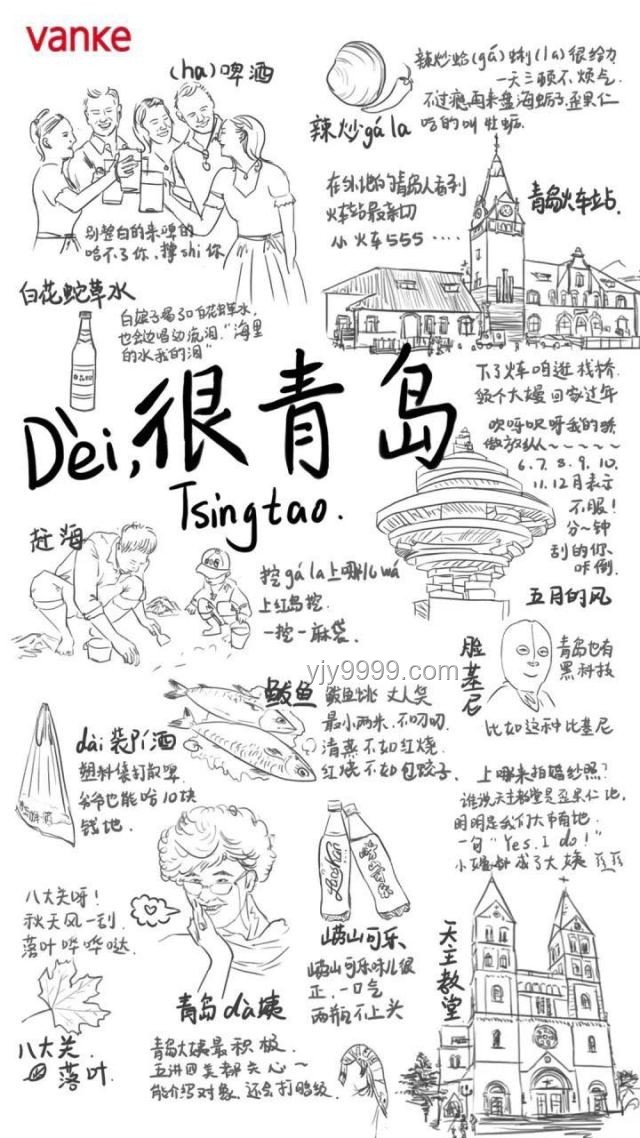 vanke
(ha)啤酒
别整白的来啤的
哈不了你、撑shi你
辣炒gá la
辣炒蛤(gá)蜊(la)很给力
一天三顿不烦气
不过瘾再来盘海蛎子歪果仁
哈的叫牡蛎.
在外地的青岛人看到
火车站最亲切
小火车555....
青岛火车站.
白花蛇草水
白娘子喝了口白花蛇草水,
也会边唱边流泪."海里
的水我的泪"
Dèi,很青岛
Tsingtao.
下了火车咱逛栈桥
领个大嫚回家过年
吹呀吹呀我的骄
傲放纵~~~~~
6.7.8.9.10.
11.12月表示
不服!
分一钟
刮的你、
咔倒.
五月的风
赶海
挖gá la上哪儿wá
上红岛挖.
一挖一麻袋.
脸基尼
青岛也有
黑科技
比如这种比基尼
鲅鱼
鲅鱼跳 丈人笑
最小两米.不叨叨.
清蒸不如红烧.
红烧不如包饺子.
yjy9999.com
dài装pí酒
塑料袋打散啤.
爷爷也能哈10块
钱地.
上哪来拍婚纱照?
谁说天主教堂是歪果仁地,
明明是我们大市南地.
一句"Yes.I do!"
天主教堂
崂山可乐
崂山可乐味儿很
正,一口气
两瓶不上头
八大关呀!
秋天风一刮.
落叶哗哗哒.
八大关
落叶.
青岛dà姨
青岛大姨最积极.
五讲四美都关心~
能介绍对象.还会打够级.